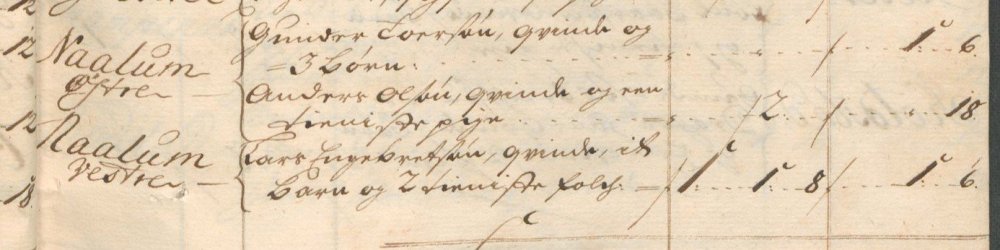 12 Naalum Gunder Toersøn, qvinde og
Østre = 3 børn. 1. 6.
Anders Olsøn, qvinde og een
12 tieniste pige 2. 18.
Naalum Lars Engebretsøn, qvinde, it
Vestre barn og 2 tieniste folch. 1. 1. 8 1. 6.
18.